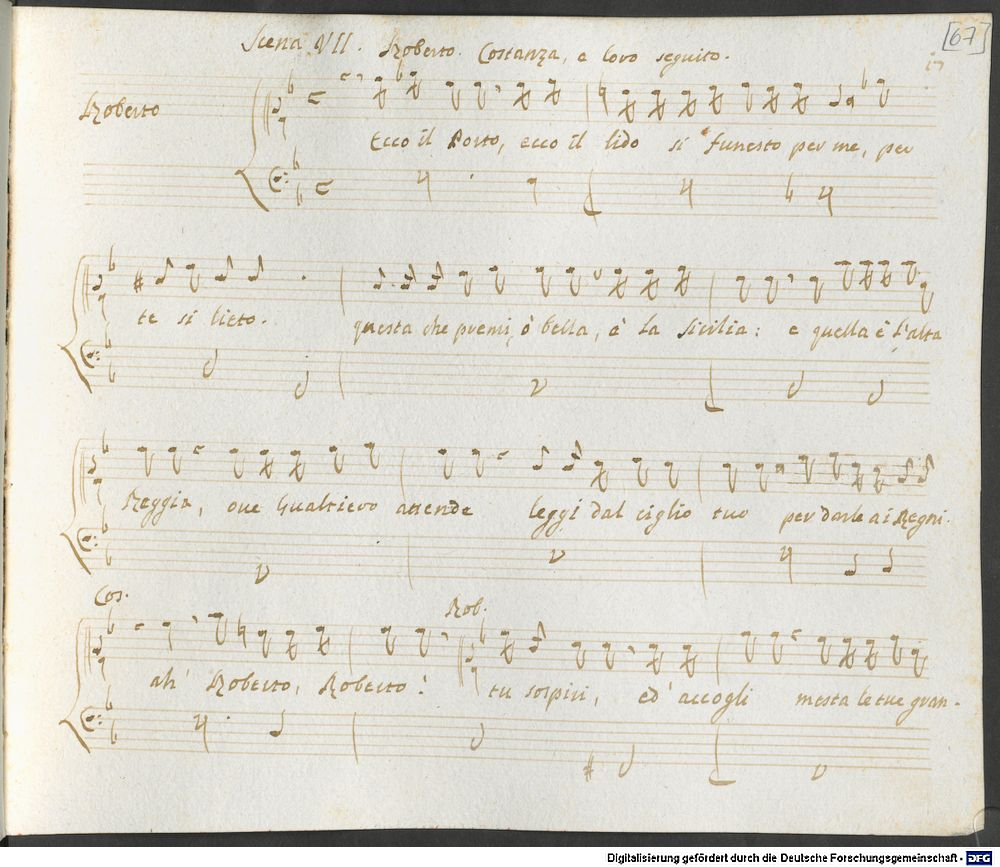 [67]
17
Scena VII. Roberto. Costanza, e loro seguito.
Roberto
Ecco il Porto, ecco il lido si funesto per me, per
te si lieto. questa che premi, ò bella, è la Sicilia: e quella è l'alta
Reggia, oue Gualtiero attende leggi dal ciglio tuo per darle ai Regni.
Cos. Rob.
ah' Roberto, Roberto! tu sospiri, ed' accogli mesta le tue gran-
Digitalisierung gefördert durch die Deutsche Forschungsgemeinschaft - DFG